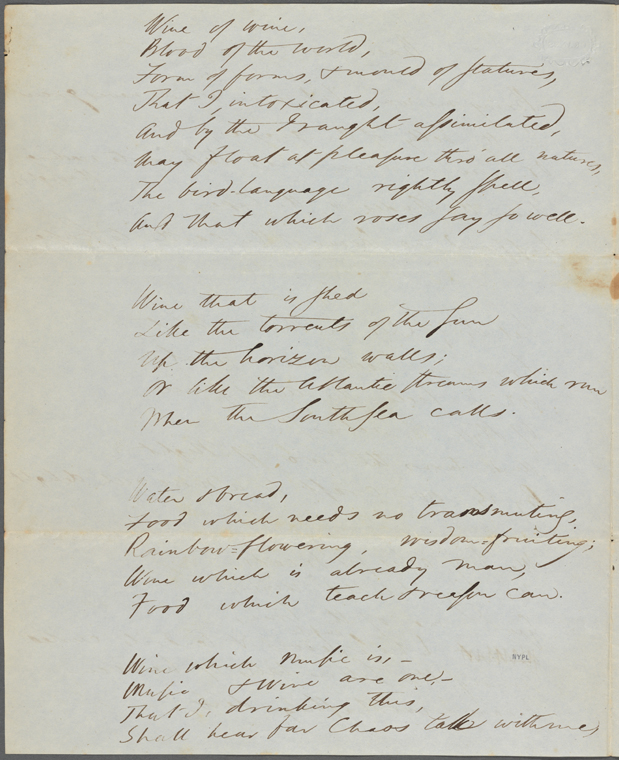 Wine of wine,
Blood of the world,
Form of forms, & mould of statures,
That I intoxicated,
And by the draught assimilated,
May float at pleasure thro' all natures,
The bird-language rightly spell,
And that which roses say so well.
Wine that is shed
Like the torrents of the Sun
Up the horizon walls;
Or like the Atlantic streams which run
When the South Sea calls.
Water & bread,
Food which needs no transmuting,
Rainbow-flowering, wisdom-fruiting;
Wine which is already man,
Food which teach & reason can.
Wine which Music is,–
Music & Wine are one,–
That I, drinking this,
Shall hear far Chaos talk with me,
NYPL